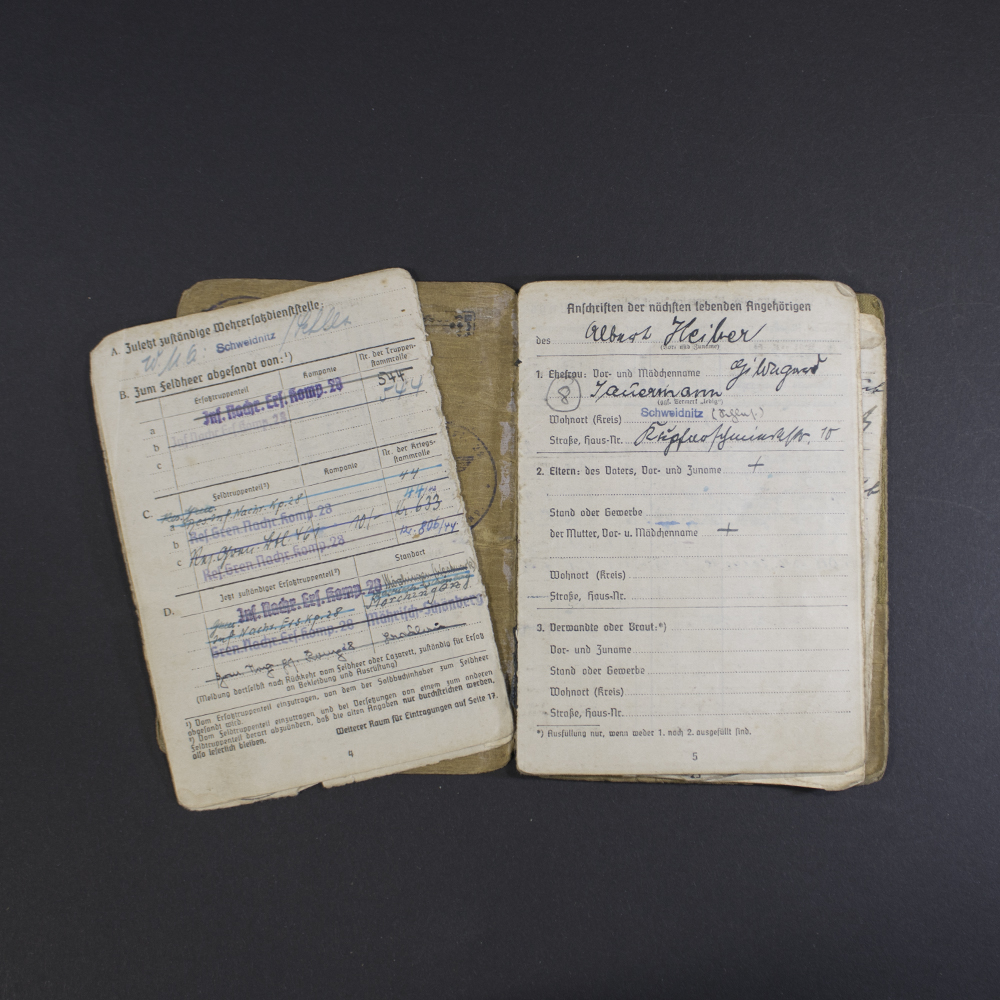 A. Zuletzt zuständige Wehrersatzdienststelle:
W.M.A. Schweidnitz
B. Zum Feldheer abgesandt von:¹)
Ersatztruppenteil Kompanie Nr. der Truppen-
stammrolle
a Inf. Nachr. Ers. Komp. 28 544
b Inf. Nachr. Ers. Komp. 28 544
c
C. Feldtruppenteil²) Kompanie Nr. der Kriegs-
stammrolle
a Nachr. Kp. 28 44
b Res. Gren. Nachr. Komp. 28 633
c Res. Gren. Nachr. Komp. 28 806/44
D. Jetzt zuständiger Ersatztruppenteil²) Standort
Inf. Nachr. Ers. Komp. 28
Inf. Nachr. Ers. Kp. 28
Gren. Nachr. Ers. Komp. 28 Mährisch Schönberg
(Meldung dortselbst nach Rückkehr vom Feldheer oder Lazarett, zuständig für Ersatz
an Bekleidung und Ausrüstung)
¹) Vom Ersatztruppenteil einzutragen, von dem der Soldbuchinhaber zum Feldheer
abgesandt wird.
²) Vom Feldtruppenteil einzutragen und bei Versetzungen von einem zum anderen
Feldtruppenteil derart abzuändern, daß die alten Angaben nur durchstrichen werden,
also leserlich bleiben.
Weiterer Raum für Eintragungen auf Seite 17.
4
Anschriften der nächsten lebenden Angehörigen
des Albert Heiber
(Vor- und Zuname)
1. Ehefrau: Vor- und Mädchenname Hildegard
8 Sauermann
(ggf. Vermerk „ledig")
Wohnort (Kreis) Schweidnitz (Schles.)
Straße, Haus-Nr. Kupferschmiedestr. 10
2. Eltern: des Vaters, Vor- und Zuname +
Stand oder Gewerbe
der Mutter, Vor- u. Mädchenname +
Wohnort (Kreis)
Straße, Haus-Nr.
3. Verwandte oder Braut:*)
Vor- und Zuname
Stand oder Gewerbe
Wohnort (Kreis)
Straße, Haus-Nr.
*) Ausfüllung nur, wenn weder 1. noch 2. ausgefüllt sind.
5